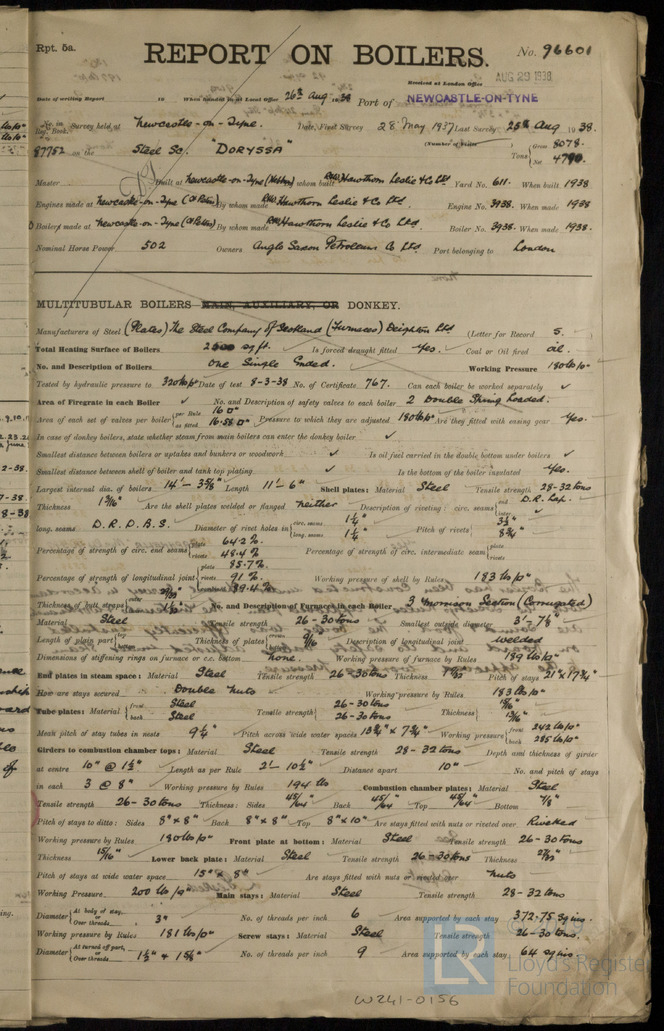 Rpt. 5a.
REPORT ON BOILERS.
No. 96601
Received at London Office AUG 29 1938
Date of writing Report 19 When handed in at Local Office 26th Aug. 1938 Port of NEWCASTLE-ON-TYNE
No. in Reg. Book. Survey held at Newcastle-on-Tyne. Date, First Survey 28 May 1937 Last Survey 25th Aug 1938.
87752 on the Steel Sc. "DORYSSA" (Number of Visits) Tons Gross 8078. Net 4790.
Master Built at Newcastle-on-Tyne (Hebburn) By whom built R&W Hawthorn Leslie & Co Ltd. Yard No. 611. When built 1938
Engines made at Newcastle-on-Tyne (St Peters) By whom made R&W Hawthorn Leslie & Co Ltd. Engine No. 3938. When made 1938
Boilers made at Newcastle-on-Tyne (St Peters) By whom made R&W Hawthorn Leslie & Co Ltd. Boiler No. 3938. When made 1938.
Nominal Horse Power 502 Owners Anglo Saxon Petroleum Co Ltd Port belonging to London
MULTITUBULAR BOILERS MAIN, AUXILIARY, OR DONKEY.
Manufacturers of Steel (Plates) The Steel Company of Scotland (Furnaces) Deighton Ltd (Letter for Record S.
Total Heating Surface of Boilers sq ft. Is forced draught fitted Yes. Coal or Oil fired oil.
No. and Description of Boilers One Single Ended. Working Pressure 180 lb/□"
Tested by hydraulic pressure to 320 lb/□" Date of test 8-3-38 No. of Certificate 767. Can each boiler be worked separately ✓
Area of Firegrate in each Boiler ✓ No. and Description of safety valves to each boiler 2 Double Spring Loaded.
Area of each set of valves per boiler per Rule 16 □" as fitted 16.58 □" Pressure to which they are adjusted 180 lb/□" Are they fitted with easing gear Yes.
In case of donkey boilers, state whether steam from main boilers can enter the donkey boiler ✓
Smallest distance between boilers or uptakes and bunkers or woodwork ✓ Is oil fuel carried in the double bottom under boilers ✓
Smallest distance between shell of boiler and tank top plating ✓ Is the bottom of the boiler insulated Yes.
Largest internal dia. of boilers 14'-3 5/8" Length 11'-6" Shell plates: Material Steel Tensile strength 28-32 tons
Thickness 1 3/16" Are the shell plates welded or flanged neither Description of riveting: circ. seams end D.R. Lap. inter. ✓
long. seams D.R.D.B.S. Diameter of rivet holes in circ. seams 1 1/4" long. seams 1 1/4" Pitch of rivets 3 1/2" 8 3/4"
Percentage of strength of circ. end seams plate 64.2% rivets 48.4% Percentage of strength of circ. intermediate seam plate rivets
Percentage of strength of longitudinal joint plate 85.7% rivets 91% combined 89.4% Working pressure of shell by Rules 183 lb/□"
Thickness of butt straps outer inner No. and Description of Furnaces in each Boiler 3 Morrison Section (Corrugated)
Material Steel Tensile strength 26-30 tons Smallest outside diameter 3'-7 1/8"
Length of plain part top bottom Thickness of plates crown bottom 9/16 Description of longitudinal joint welded
Dimensions of stiffening rings on furnace or c.c. bottom none Working pressure of furnace by Rules 189 lb/□"
End plates in steam space: Material Steel Tensile strength 26-30 tons Thickness Pitch of stays 21" x 17 3/4"
How are stays secured Double nuts Working pressure by Rules 183 lb/□"
Tube plates: Material front Steel back Steel Tensile strength 26-30 tons 26-30 tons Thickness 15/16" 13/16"
Mean pitch of stay tubes in nests 9 1/4" Pitch across wide water spaces 13 3/4" x 7 3/4" Working pressure front 242 lb/□" back 285 lb/□"
Girders to combustion chamber tops: Material Steel Tensile strength 28-32 tons Depth and thickness of girder
at centre 10" @ 1 1/2" Length as per Rule 2'-10 1/2" Distance apart 10" No. and pitch of stays
in each 3 @ 8" Working pressure by Rules 194 lb Combustion chamber plates: Material Steel
Tensile strength 26-30 tons Thickness: Sides 45/64" Back 45/64" Top 45/64" Bottom 7/8"
Pitch of stays to ditto: Sides 8" x 8" Back 8" x 8" Top 8" x 10" Are stays fitted with nuts or riveted over Riveted
Working pressure by Rules 180 lb/□" Front plate at bottom: Material Steel Tensile strength 26-30 tons
Thickness 15/16" Lower back plate: Material Steel Tensile strength 26-30 tons Thickness 27/32"
Pitch of stays at wide water space 15" x 8" Are stays fitted with nuts or riveted over nuts
Working Pressure 200 lb/□" Main stays: Material Steel Tensile strength 28-32 tons
Diameter At body of stay, or Over threads 3" No. of threads per inch 6 Area supported by each stay 372.75 sq ins.
Working pressure by Rules 181 lb/□" Screw stays: Material Steel Tensile strength 26-30 tons.
Diameter At turned off part, or Over threads 1 1/2" + 1 5/8" No. of threads per inch 9 Area supported by each stay 64 sq ins.
© 2019
LR
Lloyd's Register
Foundation
W241-0156